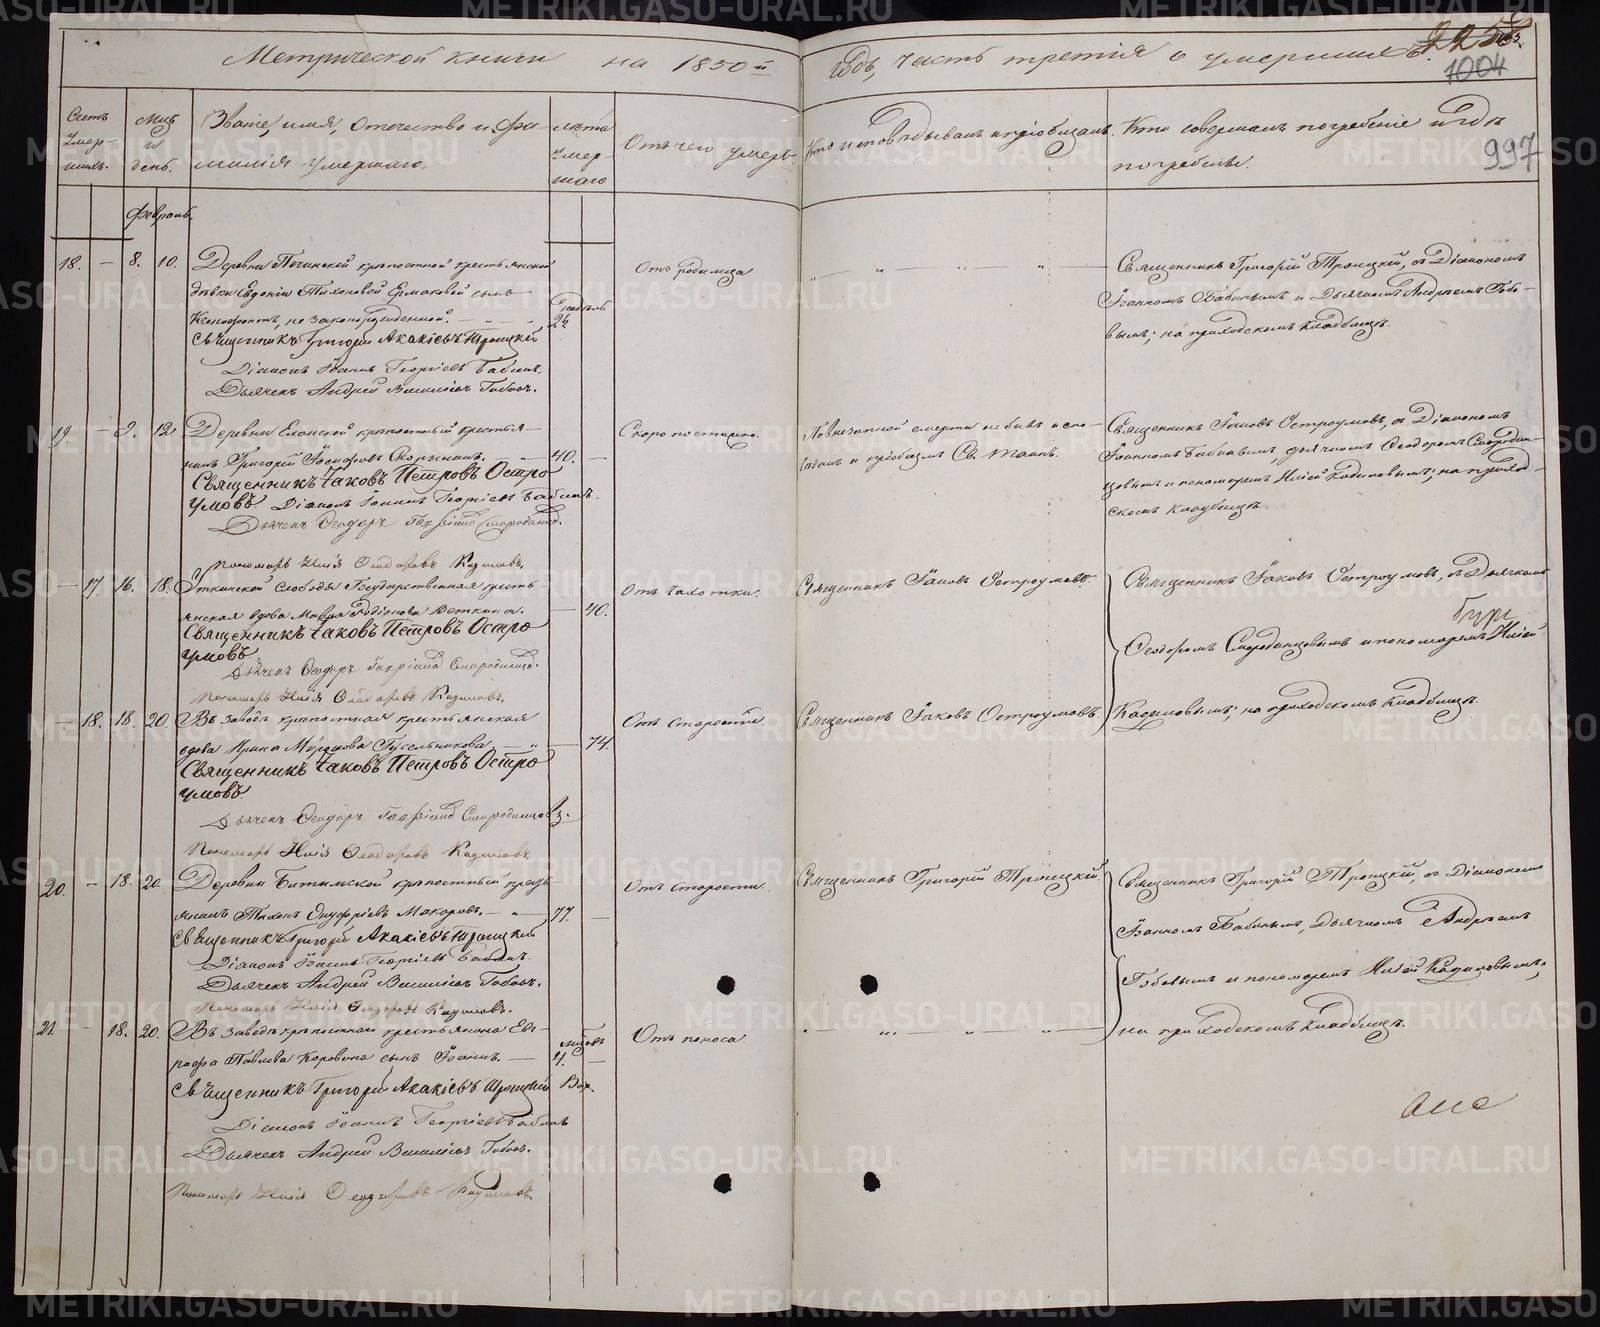 Метрической книги на 1850й годъ, часть третія о умершихъ.
1004
997
Счетъ умер-шихъ.
Мцъ и день.
Званіе, имя, отечество и фа-
милія умершаго.
лета умер-шаго
Отъ чего умеръ
Кто исповѣдывалъ и пріобщалъ.
Кто совершалъ погребеніе и гдѣ
погребены.
Февраль.
18. — 8. 10.
Деревни Починской крѣпостной крестьянской
дѣвки Евдокіи Тихоновой Ермаковой сынъ
Ксенофонтъ, не законорожденной.
Священникъ Григорій Акакіевъ Троицкій
Діаконъ Іоаннъ Георгіевъ Бабинъ.
Дьячекъ Андрей Василіевъ Гобовъ.
недѣль
2½
Отъ родимца
Священникъ Григорій Троицкій, съ Діакономъ
Іоанномъ Бабинымъ и Дьячкомъ Андреемъ Гобо-
вымъ; на приходскомъ кладбищѣ.
19. — 9. 12.
Деревни Еланской крѣпостный крестья-
нинъ Григорій Іосифовъ
40.
Священникъ Іаковъ Петровъ Остро
умовъ. Діаконъ Іоаннъ Георгіевъ Бабинъ.
Дьячекъ Ѳеодоръ Смородинцовъ.
Пономарь Илія Ѳеодоровъ Кадиловъ.
Скоропостижно.
По внезапной смерти не былъ испо-
вѣданъ и пріобщенъ Св. Таинъ.
Священникъ Іаковъ Остроумовъ, съ Діакономъ
Іоанномъ Бабинымъ, дьячкомъ Ѳеодоромъ Смородин-
цовымъ и пономаремъ Иліей Кадиловымъ; на приход-
скомъ кладбищѣ.
— 17. 16. 18.
Уткинской Слободы Государственная кресть-
янская вдова Мавра Родіонова Веткина.
40.
Священникъ Іаковъ Петровъ Остро
умовъ.
Дьячекъ Ѳеодоръ Смородинцовъ.
Пономарь Илія Ѳеодоровъ Кадиловъ.
Отъ чахотки.
Священникъ Іаковъ Остроумовъ.
Священникъ Іаковъ Остроумовъ, съ Дьячкомъ
Ѳеодоромъ Смородинцовымъ и пономаремъ Иліей
Кадиловымъ; на приходскомъ кладбищѣ.
— 18. 18. 20.
Въ заводѣ крѣпостная крестьянская
вдова Ирина Миронова Гусельникова
74.
Священникъ Іаковъ Петровъ Остро
умовъ.
Дьячекъ Ѳеодоръ Смородинцовъ.
Пономарь Илія Ѳеодоровъ Кадиловъ.
Отъ старости.
Священникъ Іаковъ Остроумовъ.
20. — 18. 20.
Деревни Битимской крѣпостный кресть-
янинъ Тихонъ Онуфріевъ Макаровъ.
77.
Священникъ Григорій Акакіевъ Троицкій
Діаконъ Іоаннъ Георгіевъ Бабинъ.
Дьячекъ Андрей Василіевъ Гобовъ.
Пономарь Илія Ѳеодоровъ Кадиловъ.
Отъ старости.
Священникъ Григорій Троицкій.
Священникъ Григорій Троицкій, съ Діакономъ
Іоанномъ Бабинымъ, Дьячкомъ Андреемъ
Гобовымъ и пономаремъ Иліей Кадиловымъ;
на приходскомъ кладбищѣ.
21. — 18. 20.
Въ заводѣ крѣпостнаго крестьянина Ев-
графа Павлова Коровина сынъ Іоаннъ.
4.
Священникъ Григорій Акакіевъ Троицкій
Діаконъ Іоаннъ Георгіевъ Бабинъ
Дьячекъ Андрей Василіевъ Гобовъ.
Пономарь Илія Ѳеодоровъ Кадиловъ.
Отъ поноса.
METRIKI.GASO-URAL.RU